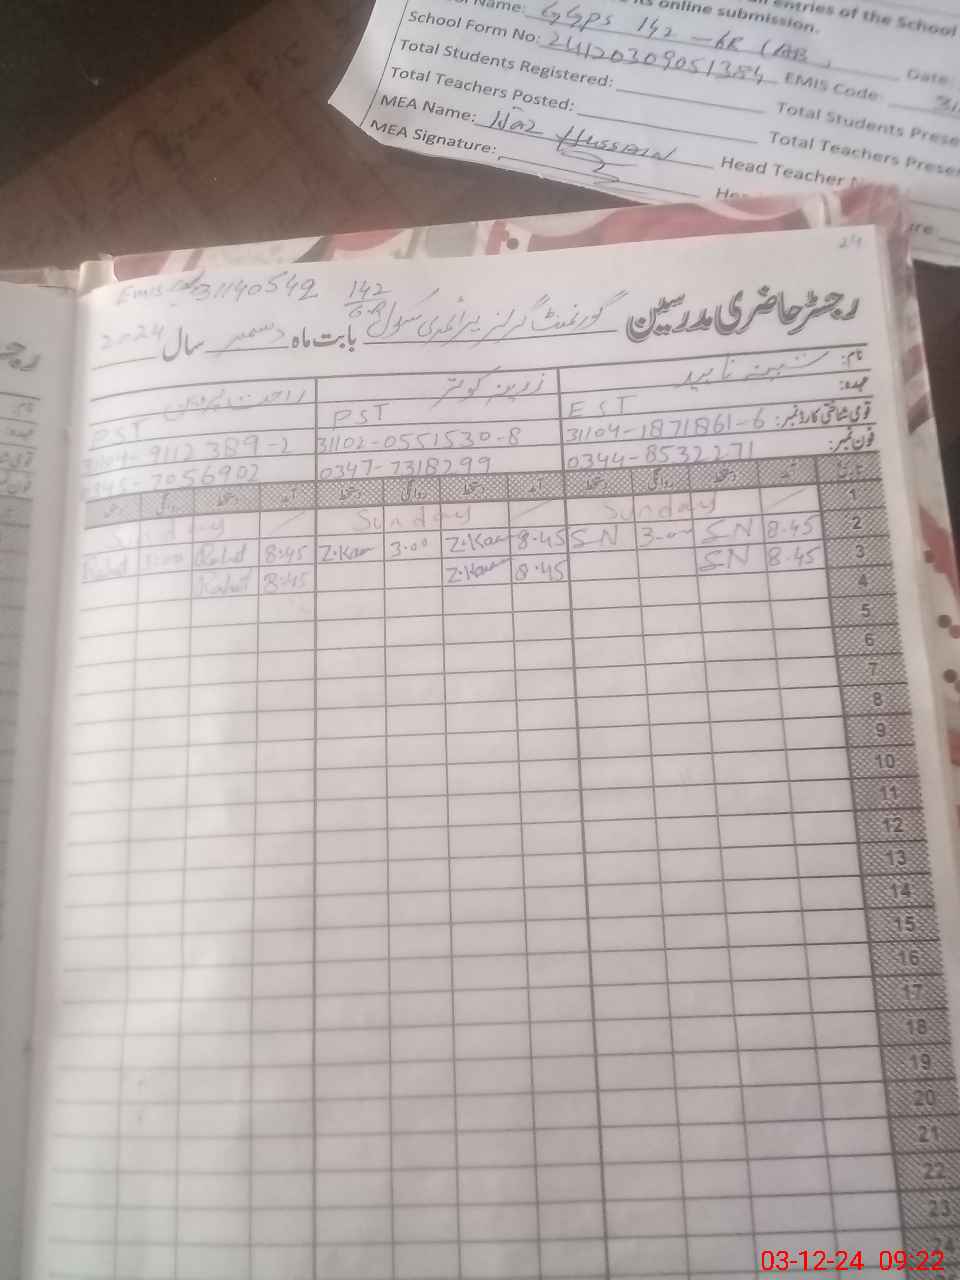 entries of the School
its online submission.
Name: GGPS 142 - 6R Date:
School Form No: 24120309051384 EMIS Code:
Total Students Registered: Total Students Prese
Total Teachers Posted: Total Teachers Prese
MEA Name: Niaz Hussain Head Teacher
MEA Signature:
24
Emis 31140542 142/6.R
رجسٹر حاضری مدرسین گورنمنٹ گرلز پرائمری سکول بابت ماہ دسمبر سال 2024
نام: ثمینہ ناہید زرینہ کوثر
عہدہ: EST PST PST
قومی شناختی کارڈ نمبر: 31104-1871861-6 31102-0551530-8 31104-9112389-2
فون نمبر: 0344-8532271 0347-7318299 0345-7056902
تاریخ آمد دستخط روانگی دستخط آمد دستخط روانگی دستخط آمد دستخط روانگی دستخط
1 Sunday Sunday Sunday
2 8.45 S-N 3.00 S-N 8.45 Z.Kau 3.00 Z.Kau 8:45 Rahat 3:00 Rahat
3 8.45 S-N 8.45 Z.Kau 8:45 Rahat
4
5
6
7
8
9
10
11
12
13
14
15
16
17
18
19
20
21
22
23
24
03-12-24 09:22